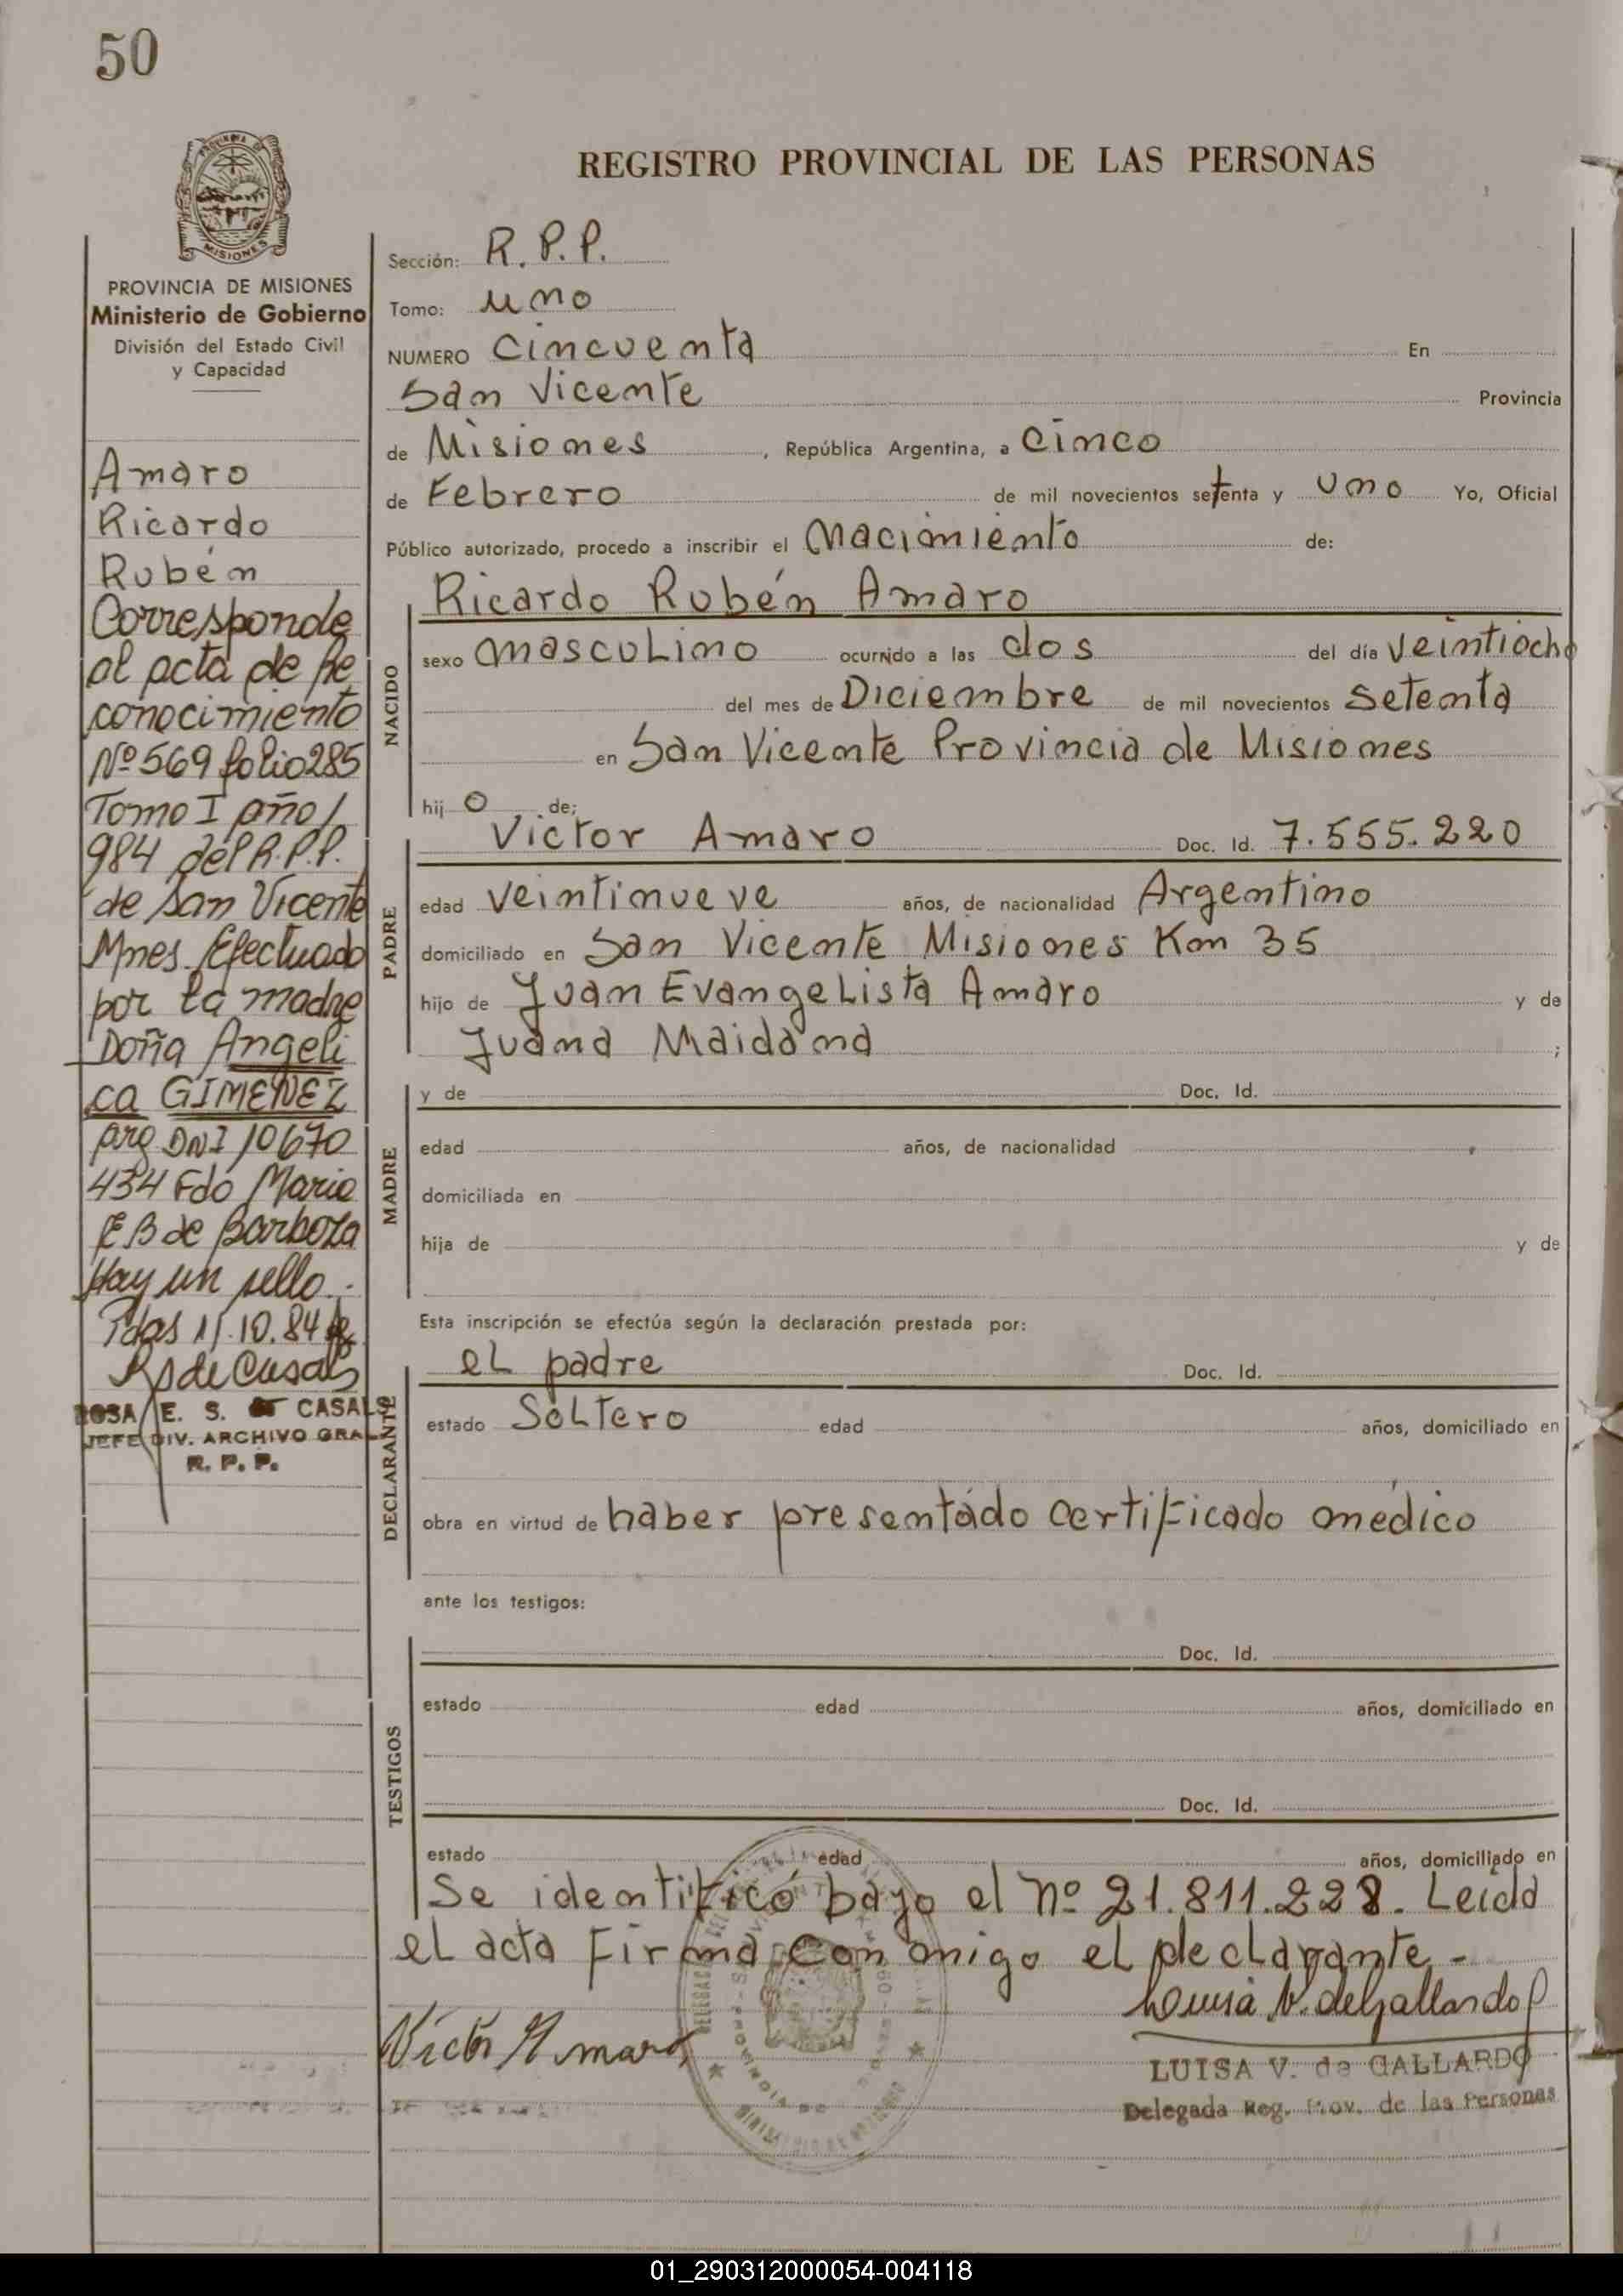 50
REGISTRO PROVINCIAL DE LAS PERSONAS
MISIONES
PROVINCIA DE MISIONES
Ministerio de Gobierno
División del Estado Civil
y Capacidad
Amaro
Ricardo
Rubén
Corresponde
al acta de Re
conocimiento
Nº 569 folio 285
Tomo I año 1
984 del R.P.P.
de San Vicente
Mnes. Efectuado
por la madre
Doña Angeli
ca GIMENEZ
arg DNI 10670
434 Fdo Maria
E B de Barboza
Hay un sello.
Pdas 11.10.84
R S de Casals
ROSA E. S. de CASALS
JEFE DIV. ARCHIVO GRAL
R. P. P.
Sección: R. P. P.
Tomo: uno
NUMERO Cincuenta En
San Vicente Provincia
de Misiones , República Argentina, a Cinco
de Febrero de mil novecientos setenta y uno Yo, Oficial
Público autorizado, procedo a inscribir el Nacimiento de:
Ricardo Rubén Amaro
NACIDO
sexo masculino ocurrido a las dos del día veintiocho
del mes de Diciembre de mil novecientos setenta
en San Vicente Provincia de Misiones
hij o de:
Victor Amaro Doc. Id. 7.555.220
PADRE
edad veintinueve años, de nacionalidad Argentino
domiciliado en San Vicente Misiones Km 35
hijo de Juan Evangelista Amaro y de
Juana Maidana ;
MADRE
y de Doc. Id.
edad años, de nacionalidad
domiciliada en
hija de y de
Esta inscripción se efectúa según la declaración prestada por:
DECLARANTE
el padre Doc. Id.
estado Soltero edad años, domiciliado en
obra en virtud de haber presentado certificado médico
ante los testigos:
TESTIGOS
Doc. Id.
estado edad años, domiciliado en
Doc. Id.
estado edad años, domiciliado en
Se identificó bajo el nº 21.811.228. Leída
el acta Firma con migo el declarante -
Luisa V. de Gallardo
Victor Amaro
LUISA V. de GALLARDO
Delegada Reg. Prov. de las Personas
01_290312000054-004118